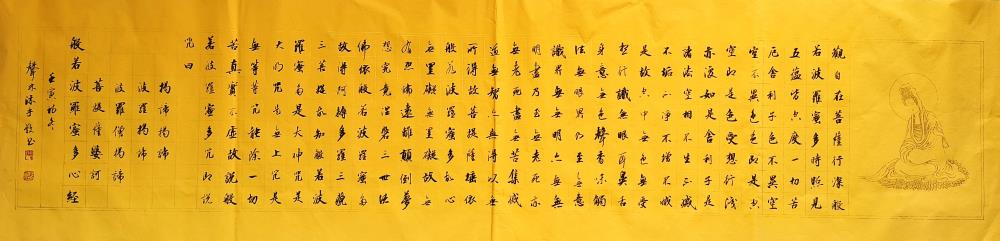 觀自在菩薩行深般
若波羅蜜多時照見
五蘊皆空度一切苦
厄舍利子色不異空
空不異色色即是空
空即是色受想行識
亦復如是舍利子是
諸法空相不生不滅
不垢不淨不增不減
是故空中無色無受
想行識無眼耳鼻舌
身意無色聲香味觸
法無眼界乃至無意
識界無無明亦無無
明盡乃至無老死亦
無老死盡無苦集滅
道無智亦無得以無
所得故菩提薩埵依
般若波羅蜜多故心
無罣礙無罣礙故無
有恐怖遠離顛倒夢
想究竟涅槃三世諸
佛依般若波羅蜜多
故得阿耨多羅三藐
三菩提故知般若波
羅蜜多是大神咒是
大明咒是無上咒是
無等等咒能除一切
苦真實不虛故說般
若波羅蜜多咒即說
咒曰
揭諦揭諦
波羅揭諦
波羅僧揭諦
菩提薩婆訶
般若波羅蜜多心經
壬寅初冬